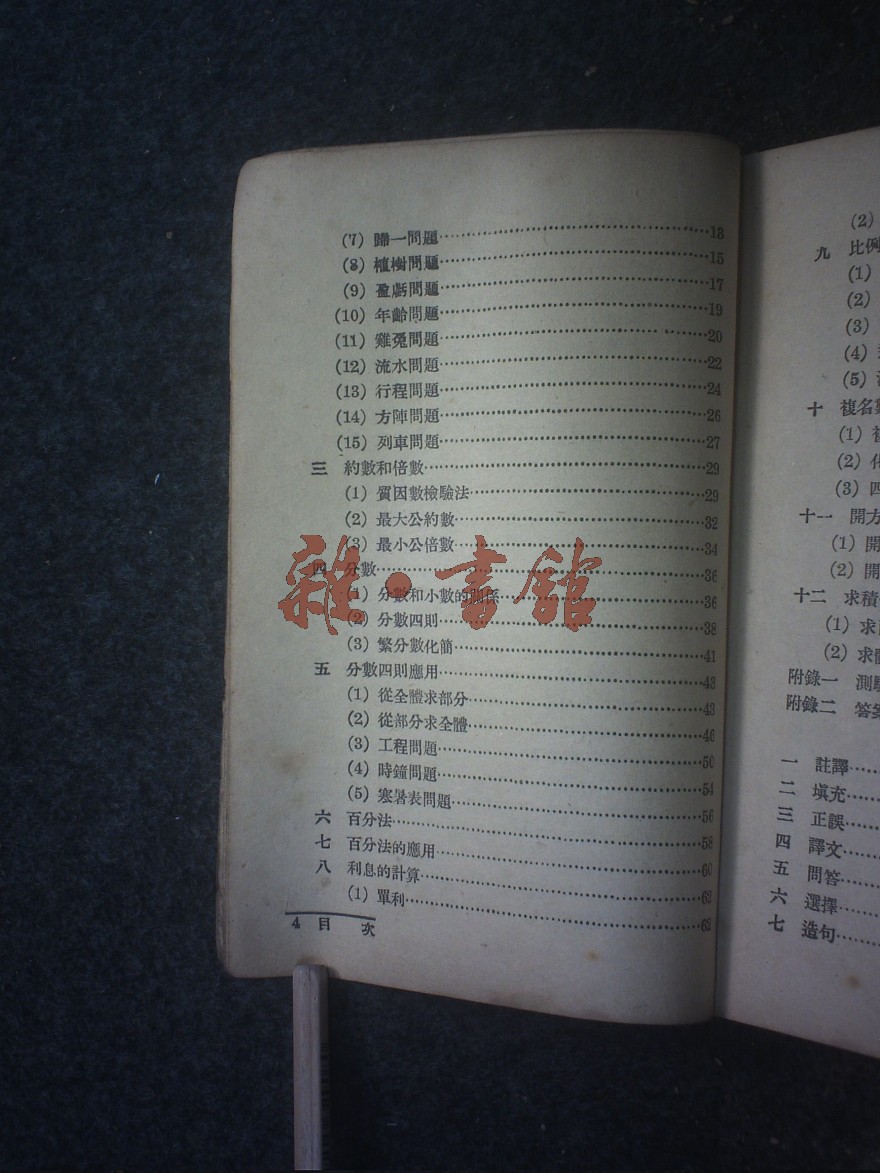 (7) 歸一問題……13
(8) 植樹問題……15
(9) 盈虧問題……17
(10) 年齡問題……19
(11) 雞兔問題……20
(12) 流水問題……22
(13) 行程問題……24
(14) 方陣問題……26
(15) 列車問題……27
三 約數和倍數……29
(1) 質因數檢驗法……29
(2) 最大公約數……32
(3) 最小公倍數……34
四 分數……36
(1) 分數和小數的關係……36
(2) 分數四則……38
(3) 繁分數化簡……41
五 分數四則應用……43
(1) 從全體求部分……43
(2) 從部分求全體……46
(3) 工程問題……50
(4) 時鐘問題……54
(5) 寒暑表問題……56
六 百分法……58
七 百分法的應用……60
八 利息的計算……62
(1) 單利……62
4 目 次
雜·書館
(2)
九 比例
(1)
(2)
(3)
(4)
(5)
十 複名
(1)
(2)
(3) 四
十一 開方
(1) 開
(2) 開
十二 求積
(1) 求
(2) 求
附錄一 測
附錄二 答案
一 註譯……
二 填充……
三 正誤……
四 譯文……
五 問答……
六 選擇……
七 造句……